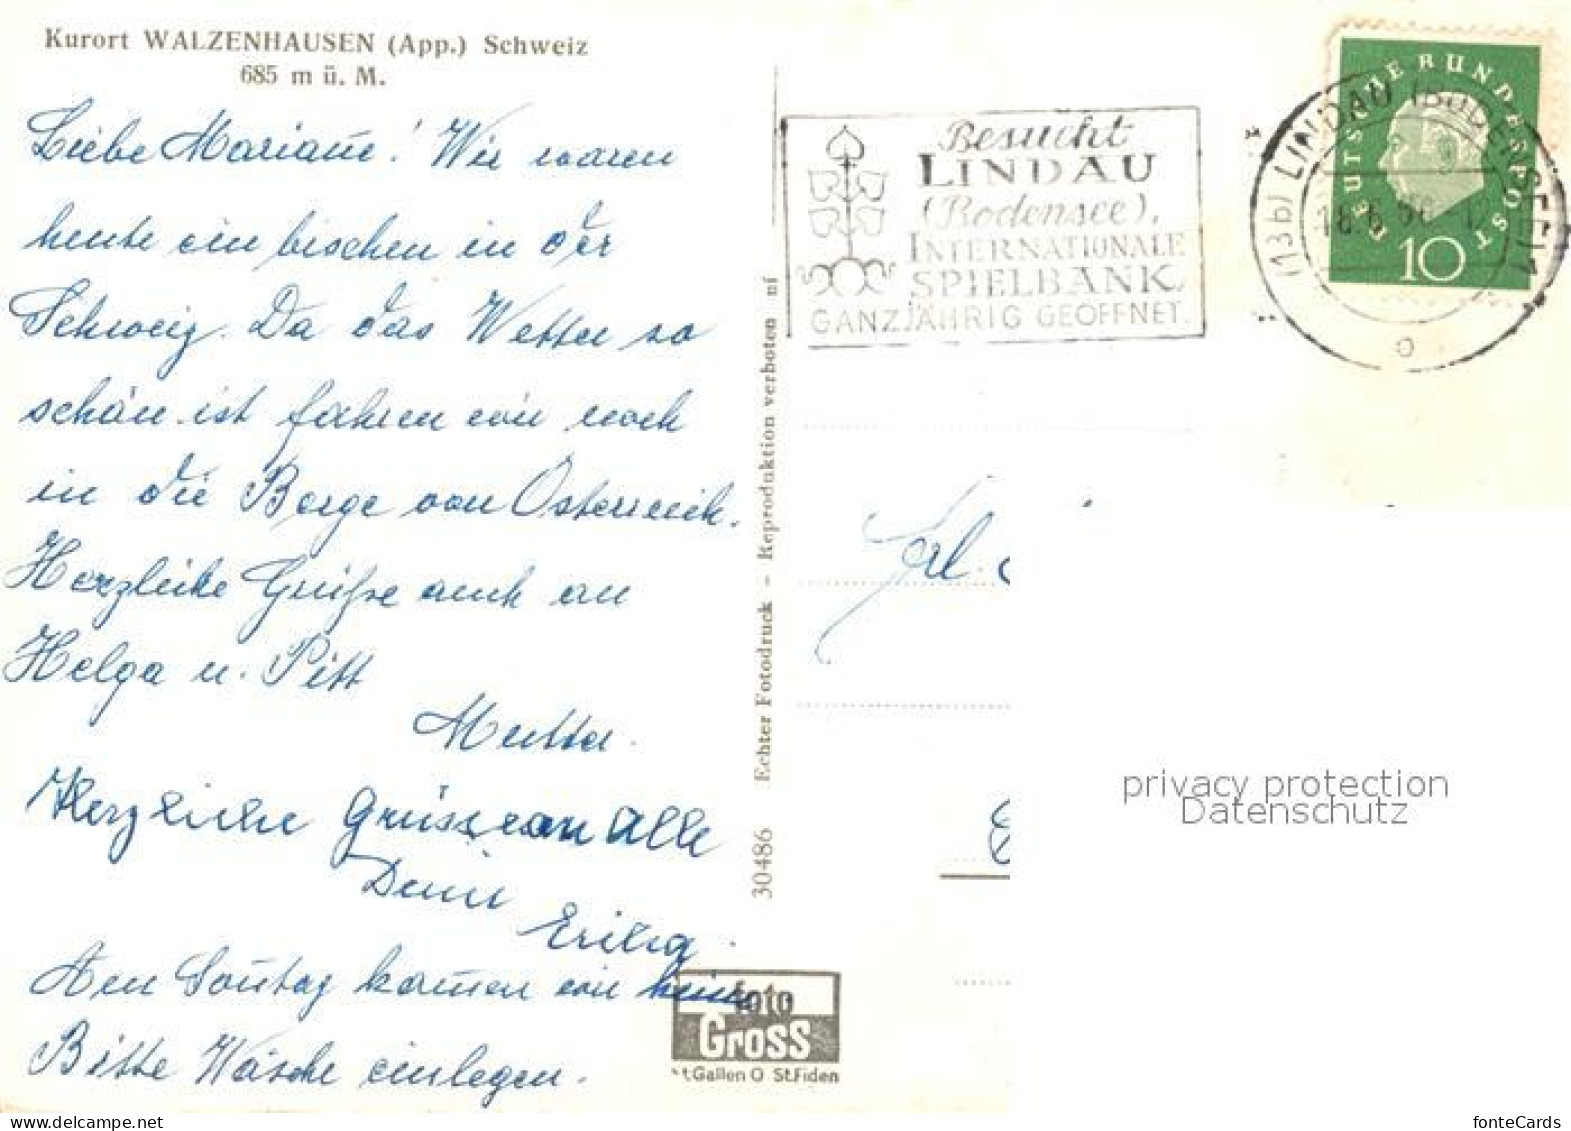 Kurort WALZENHAUSEN (App.) Schweiz
685 m ü. M.
Liebe Mariañe! Wir waren
heute ein bischen in der
Schweiz. Da das Wetter so
schön ist fahren wir noch
in die Berge von Österreich.
Herzleihe Grüße auch an
Helga u. Pitt
Mutter.
Herzliche Grüsse an Alle
Deine
Erika.
Am Soñtag komen wir heim
Bitte Wäsche einlegen.
30486 Echter Fotodruck – Reproduktion verboten ni
foto
GROSS
St.Gallen O St.Fiden
Besucht
LINDAU
(Bodensee),
INTERNATIONALE
SPIELBANK,
GANZJÄHRIG GEÖFFNET.
DEUTSCHE BUNDESPOST
10
(13b) LINDAU (BODENSEE)
Frl.
privacy protection
Datenschutz
www.delcampe.net
fonteCards